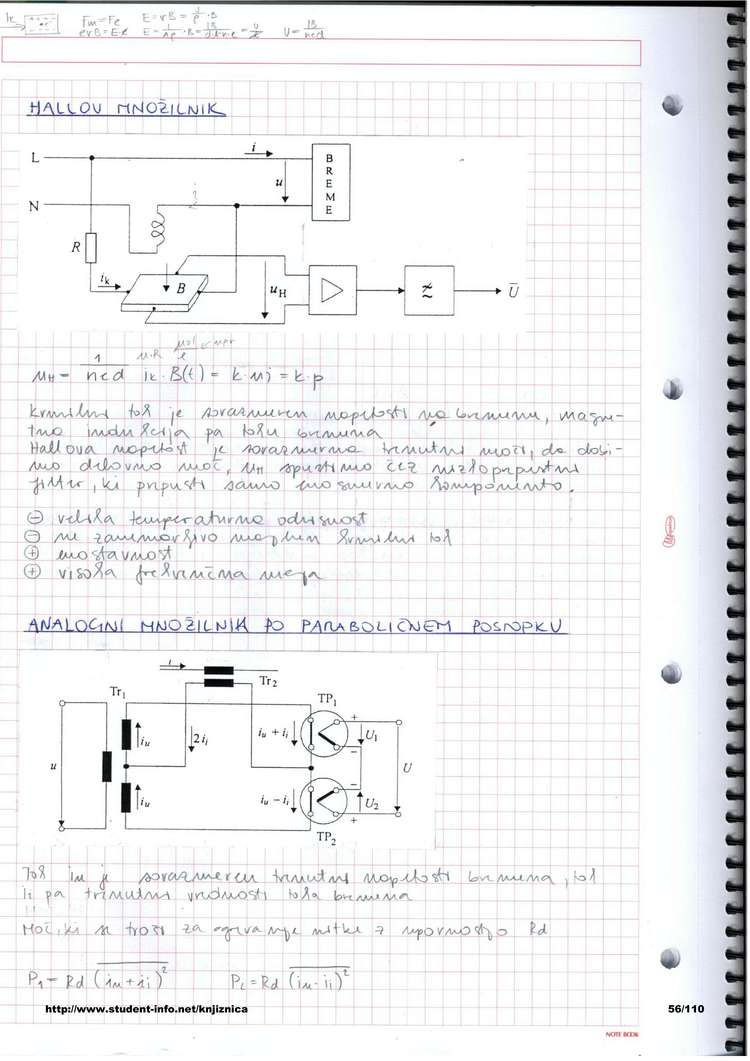 Ik Fm=Fe E=vB= J/ρ ·B
evB=Ee E= 1/Aρ ·B= U= IB/ned
HALLOV MNOŽILNIK
i
L
B
R
E
M
E
u
i
N
R
ik
B
uH
≈
Ū
uH = 1/ned ik·B(t) = k·ui = k·p
krmilni tok je sorazmeren napetosti na bremenu, magne-
tna indukcija pa toku bremena
Hallova napetost je sorazmerna trenutni moči, da dobi-
mo delovno moč, uH spustimo čez nizkoprepustni
filter, ki prepusti samo enosmerno komponento.
⊖ velika temperaturna odvisnost
⊖ ne zanemarljivo majhen krmilni tok
⊕ enostavnost
⊕ visoka frekvenčna meja
ANALOGNI MNOŽILNIK PO PARABOLIČNEM POSTOPKU
i
Tr1 Tr2 TP1
iu 2ii iu + ii + U1
u − U
iu iu − ii − U2
+
TP2
Tok iu je sorazmeren trenutni napetosti bremena, tok
ii pa trenutni vrednosti toka bremena
Moč, ki se troši za ogrevanje nitke z upornostjo Rd
P1 = Rd (iu+ii)² P2 = Rd (iu-ii)²
http://www.student-info.net/knjiznica 56/110
NOTE BOOK